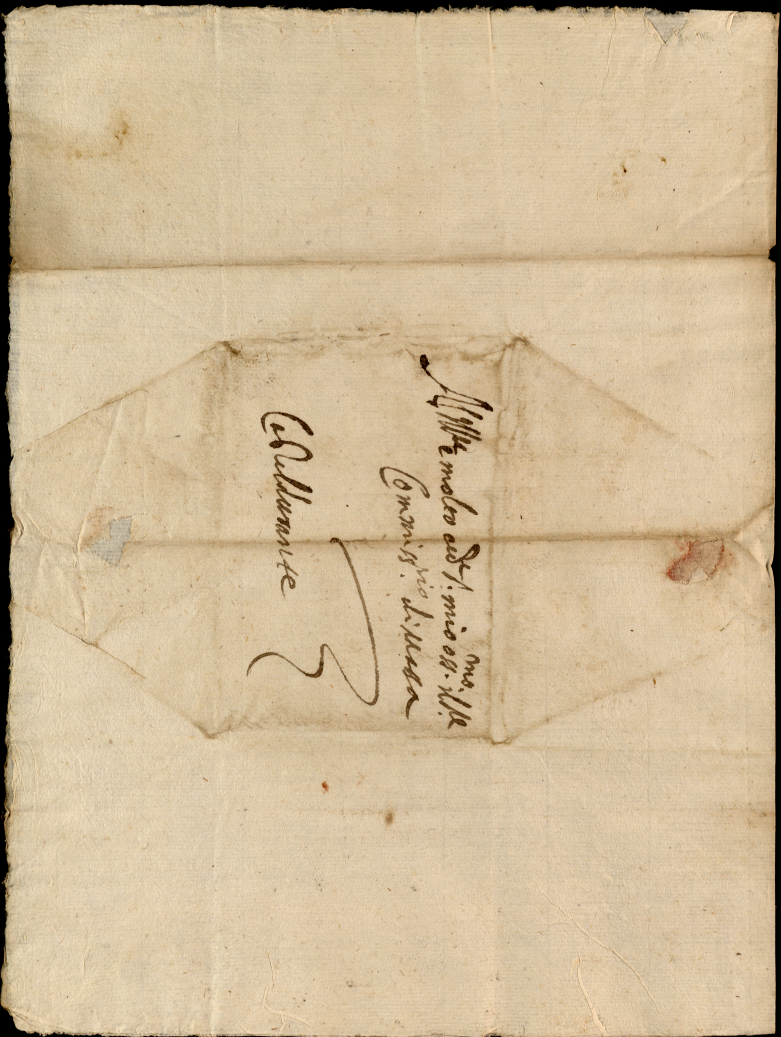 Al Ill.re e molto ecc.te s. mio oss.mo il s.re
Commiss.rio di Massa
Casteldurante